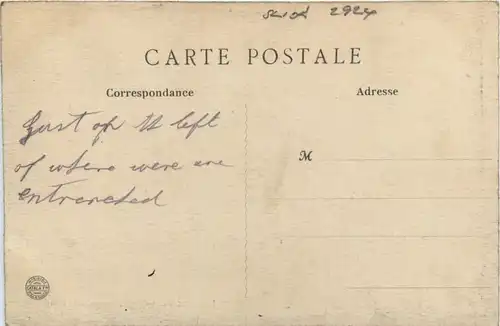 2924
CARTE POSTALE
Correspondance
Adresse
Just on the left
of where were are
entrenched
M